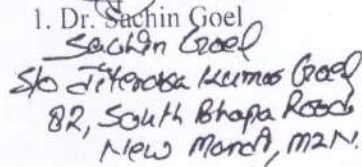 1. Dr. Sachin Goel
Sachin Goel
S/o Jitendra Kumar Goel
82, South Bhopa Road
New Mandi, MZN.